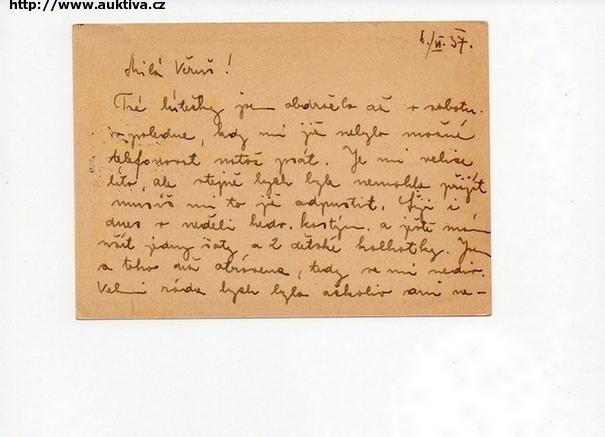 http://www.auktiva.cz
6./VI.37.
Milá Věruš!
Tvé lístečky jsem obdržela až v sobotu
v poledne, kdy mi již nebylo možné
telefonovat natož psát. Je mi velice
líto, ale stejně bych byla nemohla přijít
musíš mi to již odpustit. Šiji i
dnes v neděli hedv. kostým. a ještě mám
ušít jedny šaty a 2 dětské kalhotky. Jsem
z toho už otrávena, tedy se mi nediv.
Velmi ráda bych byla ačkoliv ani ne-